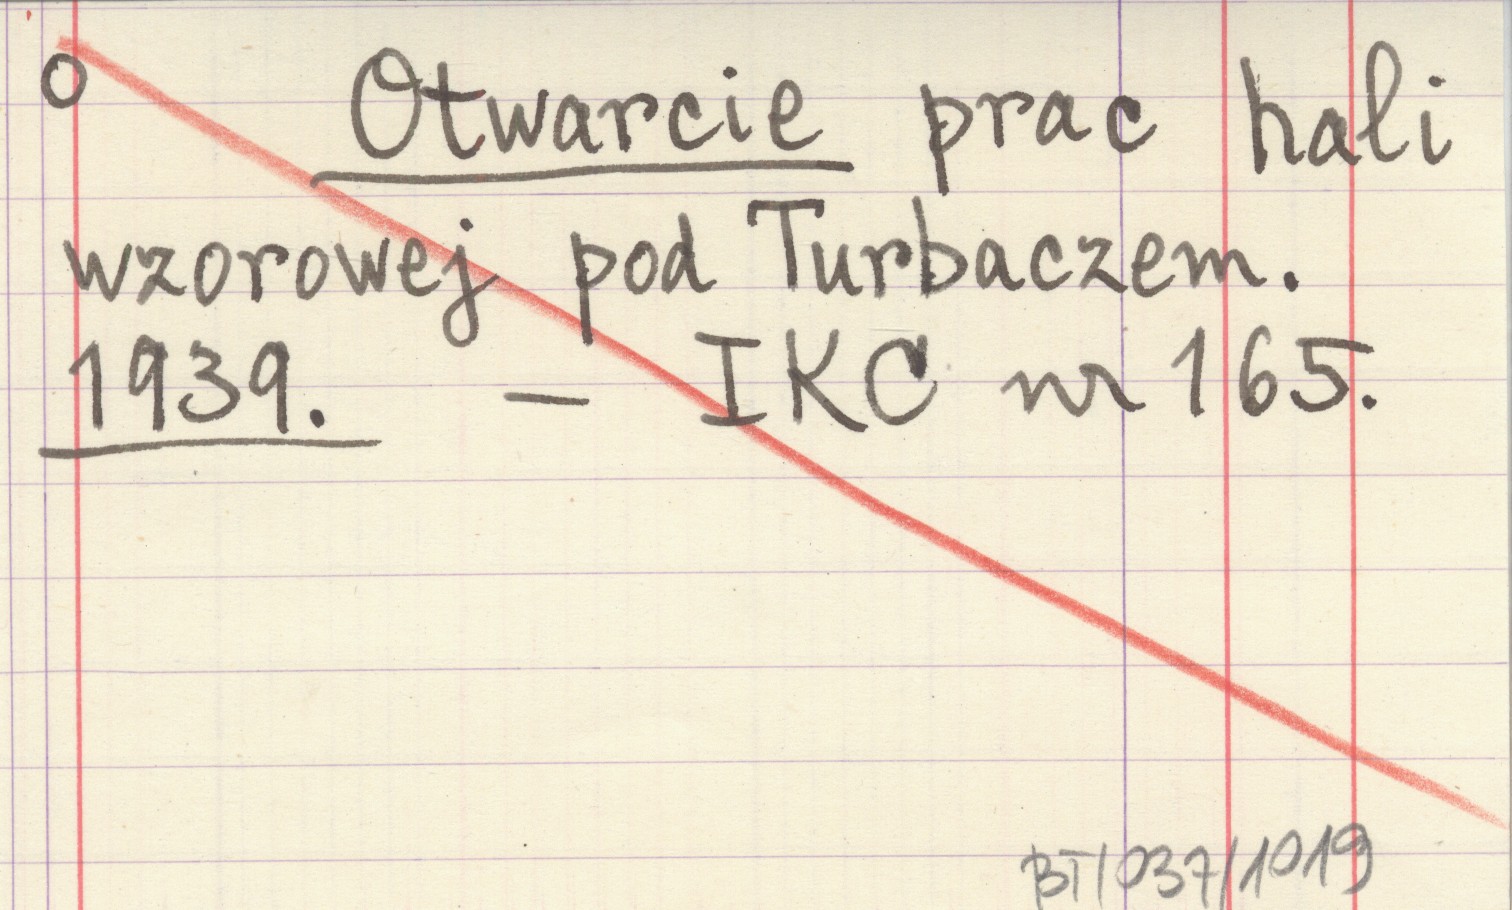 O
Otwarcie prac hali
wzorowej pod Turbaczem.
1939. — IKC nr 165.
BT/037/1019